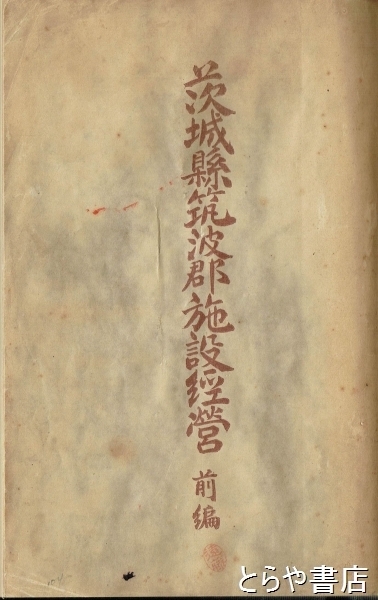 茨城縣筑波郡施設經營
前編
とらや書店